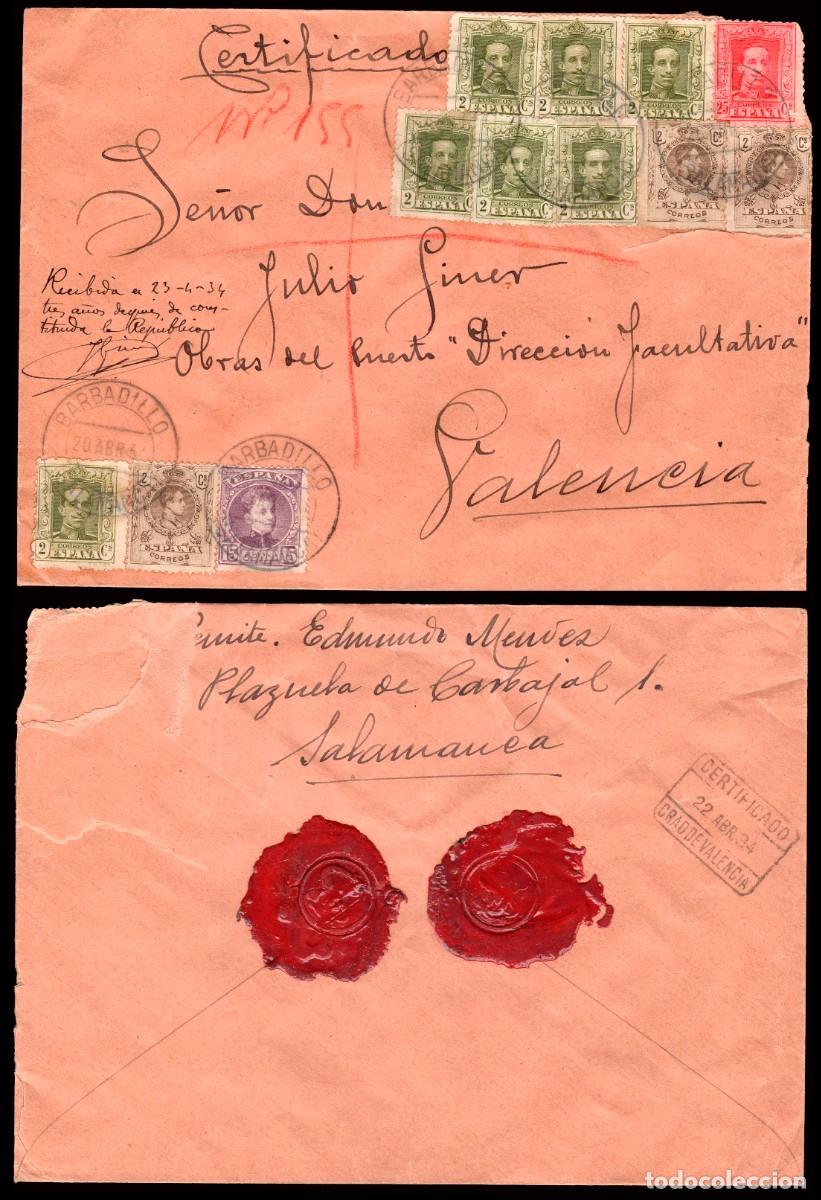 Certificado
Nº 155
Señor Don
Julio Giner
Obras del Puerto "Dirección Facultativa"
Valencia
Recibida el 23-4-34
tres años después de cons-
tituida la República
JGiner
2 CORREOS ESPAÑA Cs
2 CORREOS ESPAÑA Cs
2 CORREOS ESPAÑA Cs
25 CORREOS ESPAÑA Cs
2 CORREOS ESPAÑA Cs
2 CORREOS ESPAÑA Cs
2 CORREOS ESPAÑA Cs
2 Cs ESPAÑA CORREOS
2 Cs ESPAÑA CORREOS
BARBADILLO
20 ABR 3
BARBADILLO
2 CORREOS ESPAÑA Cs
2 Cs ESPAÑA CORREOS
ESPAÑA 15 15
Remite. Edmundo Mendez
Plazuela de Carbajal 1.
Salamanca
CERTIFICADO
22 ABR.34
GRAO DE VALENCIA
todocoleccion